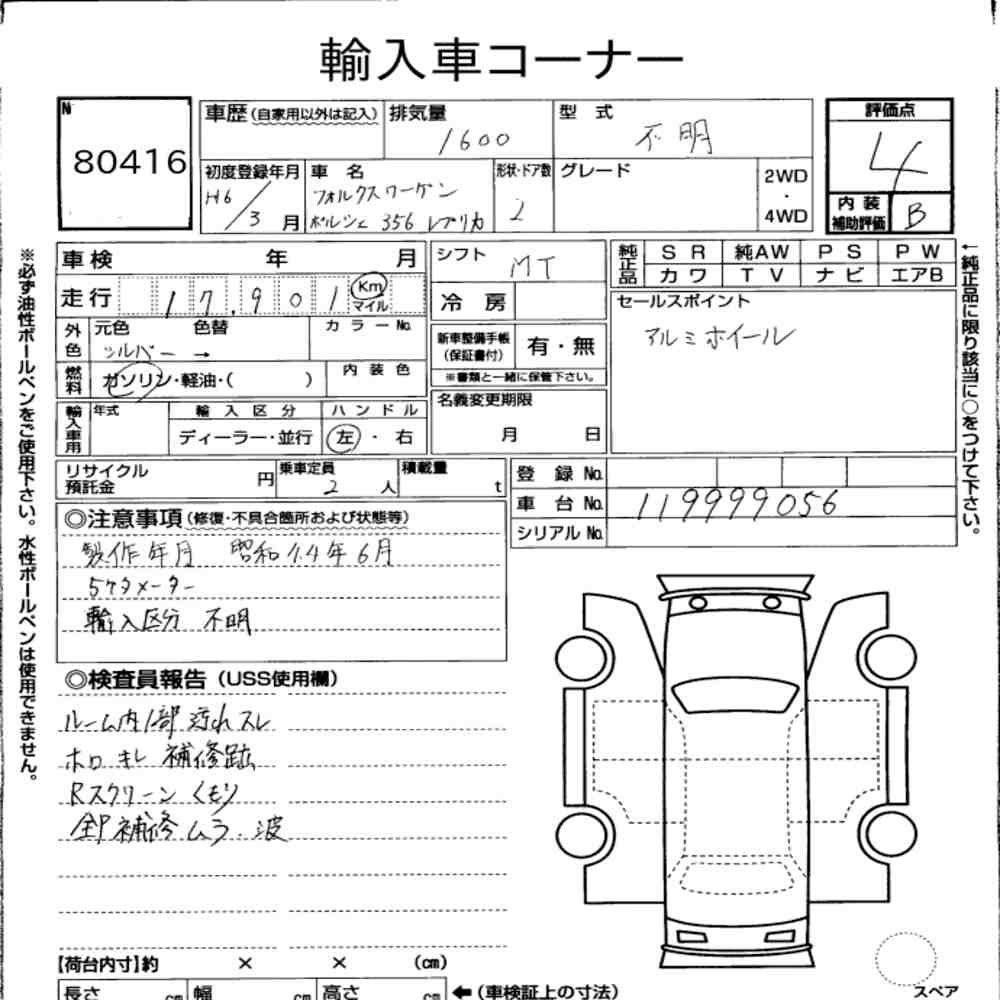 輸入車コーナー
№
80416
車歴(自家用以外は記入)
排気量
1600
型式
不明
評価点
4
内装補助評価
B
初度登録年月
H6/3月
車名
フォルクスワーゲン
ポルシェ 356 レプリカ
形状・ドア数
2
グレード
2WD
・
4WD
車検 年 月
走行 17,901 Km マイル
外色
元色 色替
シルバー →
カラーNo.
燃料
ガソリン・軽油・( )
内装色
輸入車用
年式
輸入区分
ディーラー・並行
ハンドル
左・右
シフト
MT
冷房
新車整備手帳(保証書付)
有・無
※書類と一緒に保管下さい。
名義変更期限
月 日
純正品
SR 純AW PS PW
カワ TV ナビ エアB
セールスポイント
アルミホイール
リサイクル預託金 円
乗車定員
2人
積載量
t
登録No.
車台No. 119999056
シリアルNo.
◎注意事項(修復・不具合箇所および状態等)
製作年月 昭和44年6月
5ケタメーター
輸入区分 不明
◎検査員報告(USS使用欄)
ルーム内1部 汚れスレ
ホロ キレ 補修跡
Rスクリーン くもり
全P補修ムラ・波
【荷台内寸】約 × × (cm)
長さ cm 幅 cm 高さ cm ←(車検証上の寸法)
スペア
※必ず油性ボールペンをご使用下さい。水性ボールペンは使用できません。
←純正品に限り該当に○をつけて下さい。